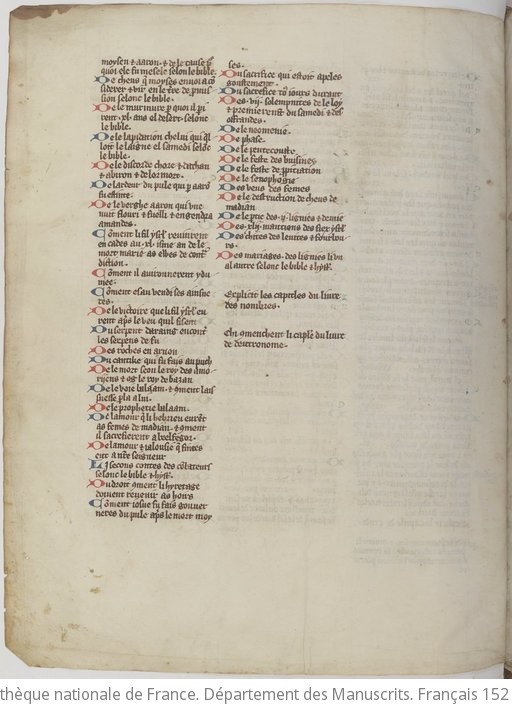 moysen & aaron. & de le cause p̄
quoi ele fu mesele selon le bible.
De cheus q̄ moyses envoia cō
siderer & vir en le tre de pmis
sion selonc le bible.
De le murmure p̄ quoi il pi
rent .xl. ans el desert selonc
le bible.
De le lapidation chelui qui qͥl
loit le laigne el samedi selōc
le bible.
De le discorde chore & dathan
& abiron & de lor mort.
De lardour du pule qui p̄ aarō
fu estinte.
De le verghe aaron qui une
nuit flouri & fuelli & engendra
amandes.
Cōment li fil ysrl̄ revinrent
en cades au .xl. isme an de le
mort marie as elbes de contͣ
diction.
Cōment il avironnerent ydu
mee.
Cōment esau vendi ses ainsne
tes.
De le victoire que li fil ysrl̄ eu
rent ap̄s le veu quil fisent
Du serpent darain encont
les serpens de fu
Des roches en arnon
Du cantike qui fu fais au puch
De le mort seon le roy des amo
rijens & og le roy de bazan
De le voie balaam & 9ment laf
nesse p̄la a lui.
De le prophetie balaam.
De lamour q̄ li hebrieu eurēt
as femes de madian & 9ment
il sacrefierent a beelfegor.
De lamour & ialousie q̄ finees
eut a nr̄e seigneur
Li secons contes des cōbateurs
selonc le bible & hyst̄.
Du droit 9ment li hyretage
doivent revenir as hoirs
Cōment iosue fu fais gouver
neres du pule ap̄s le mort moy
ses.
Du sacrifice qui estoit apeles
goustement.
Du sacrefice to⁹ iours durant
Des .vij. solempnites de le loy
& premierem̄t du samedi & des
offrandes.
De le neomenie.
De phase.
De le penthecouste
De le feste des buisines
De le feste de p̄piciation
De le senophegie
Des veus des femes
De le destruction de cheus de
madian
De le p̄tie des .ij. lignies & demie
Des .xlij. mantions des fiex ysrl̄
Des chites des levites & fourbou
rs.
Des mariages des lignies li un
al autre selonc le bible & hyst̄.
Explicit les capitles du livre
des nombres.
Chi 9menchent li caple du livre
de deutronome.
thèque nationale de France. Département des Manuscrits. Français 152